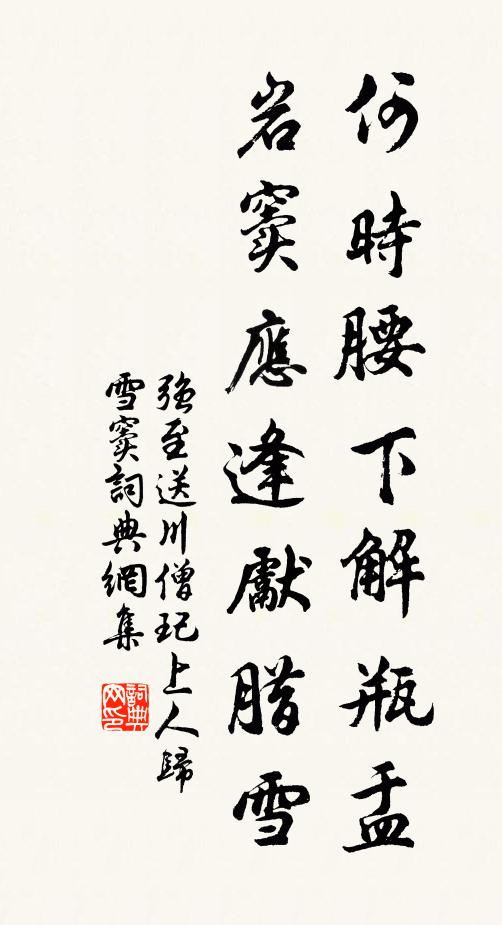 何時腰下解瓶盂
岩竇應逢獻腊雪
強至送川僧玘上人歸
雪竇詞典網集
詞典网印